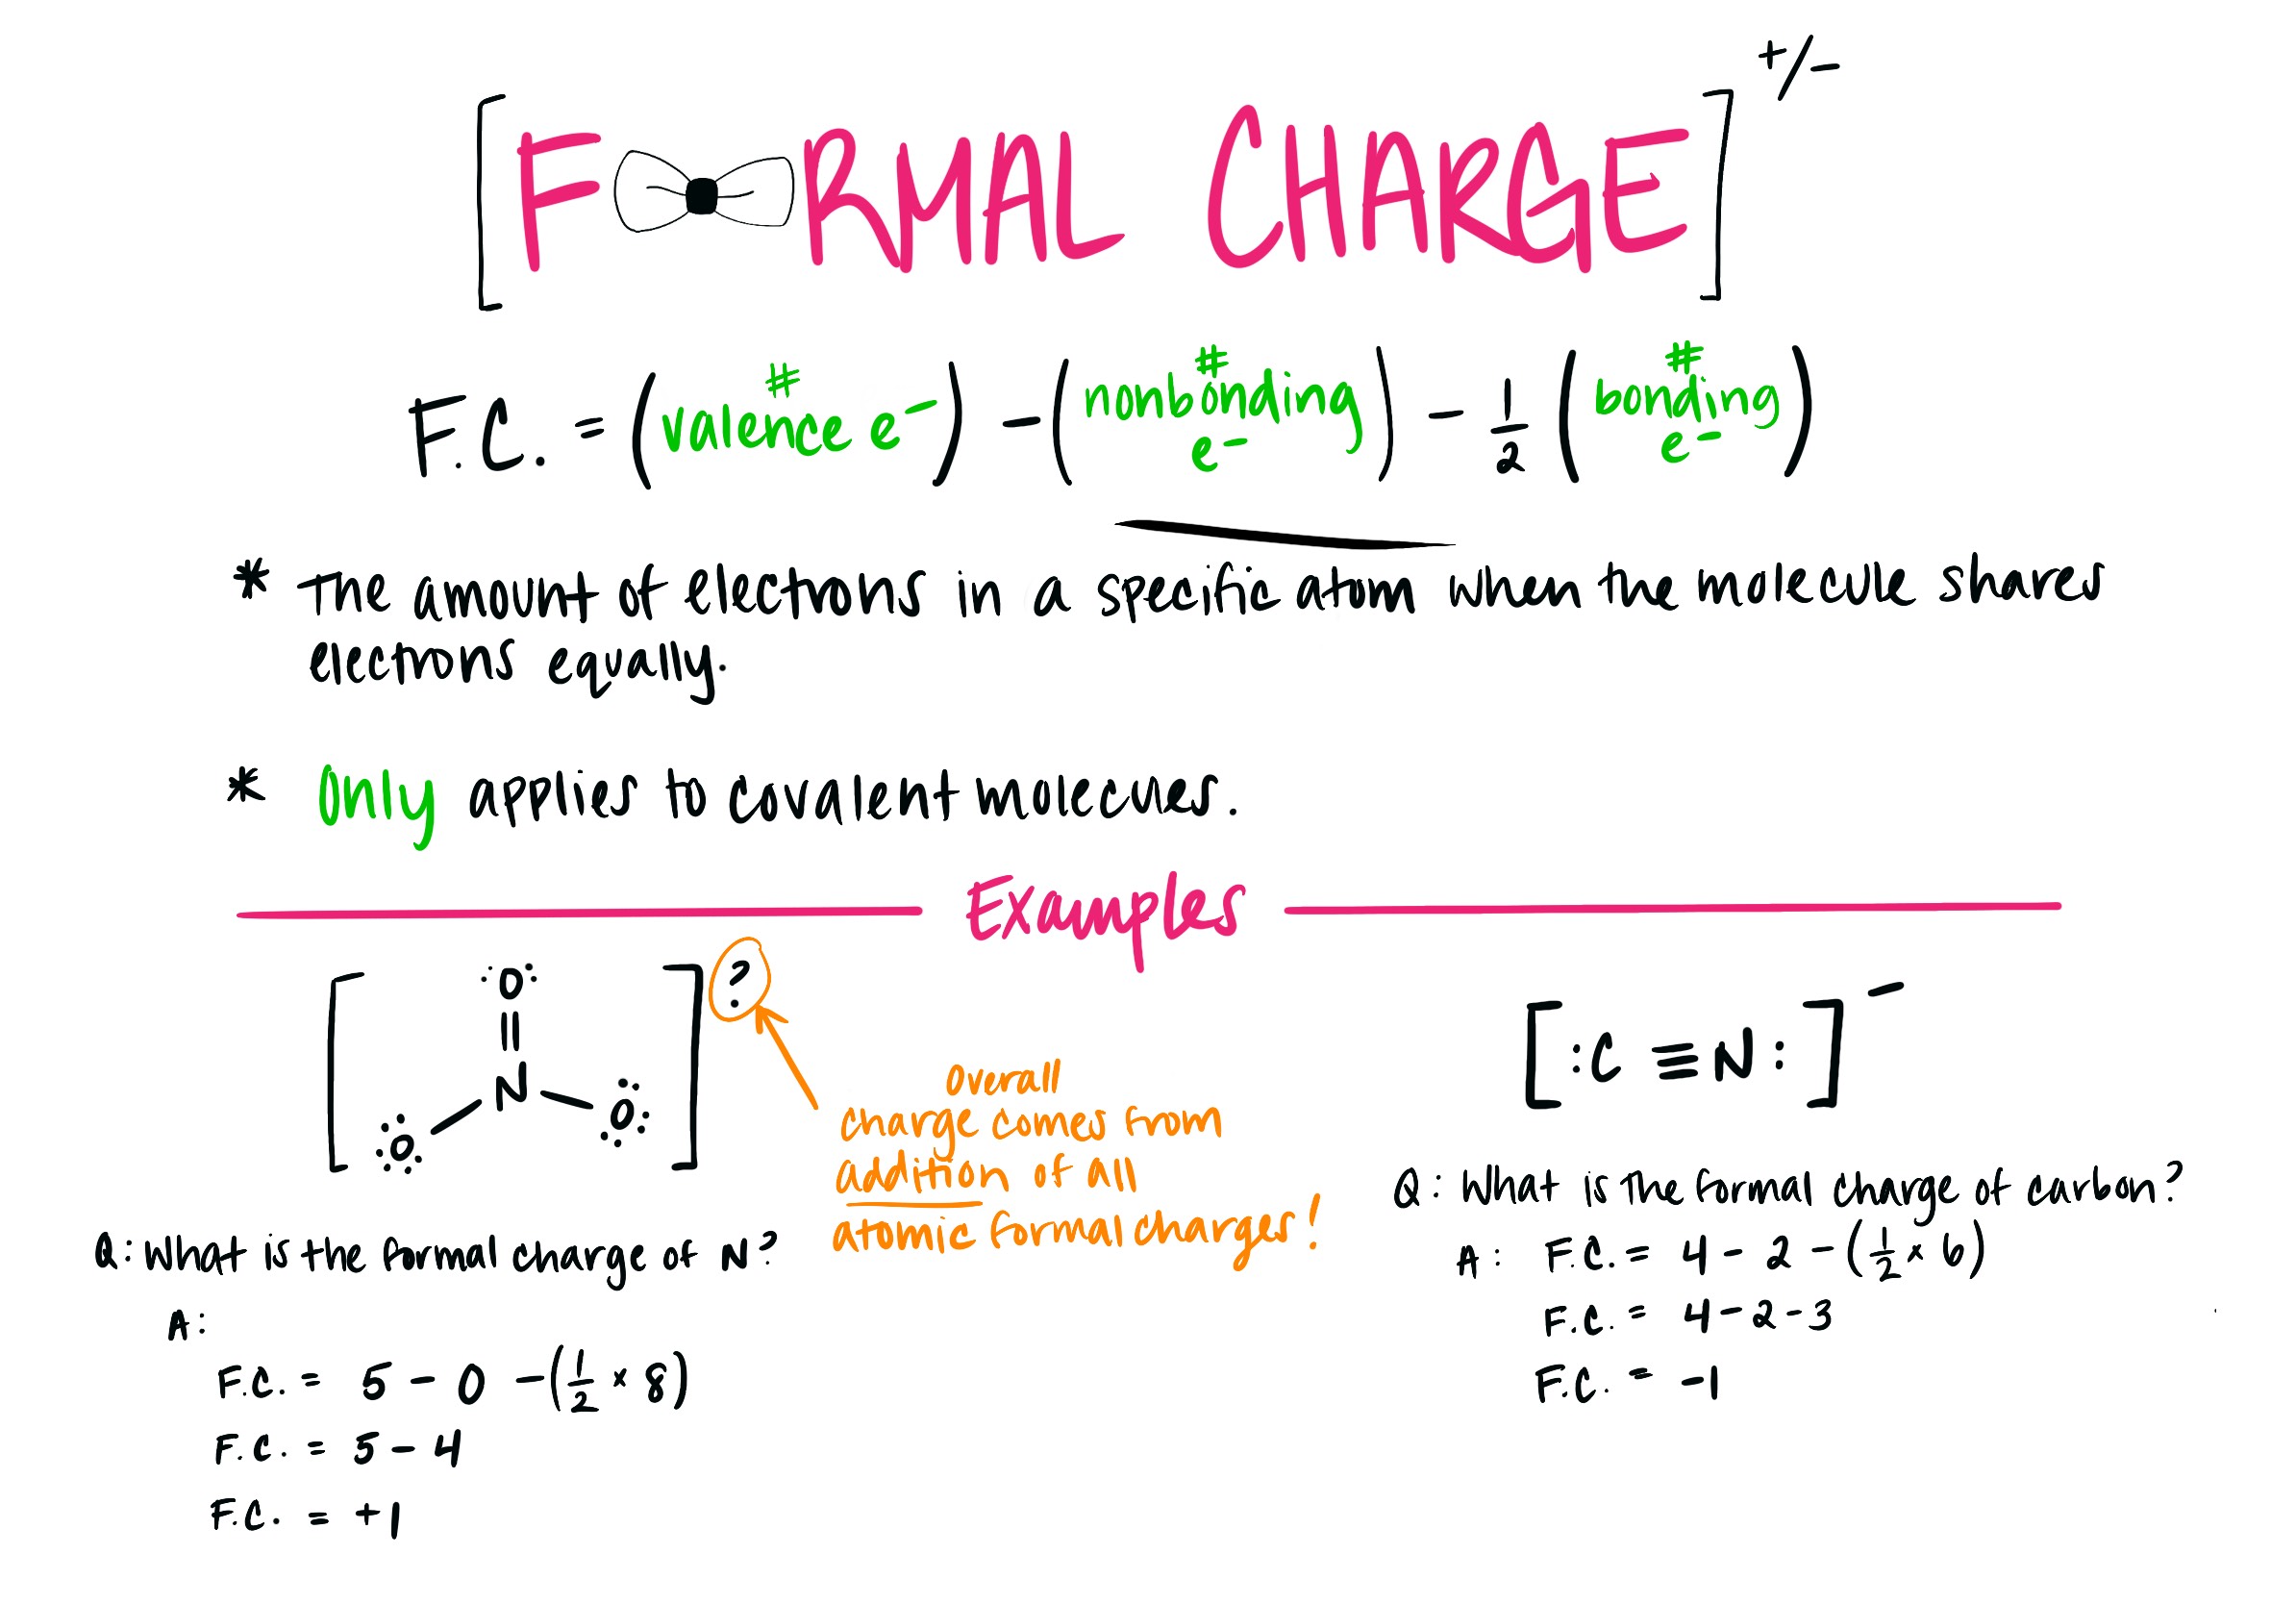 [F RMAL CHARGE]⁺/⁻
F.C. = (# valence e⁻) − (# nonbonding e⁻) − 1/2 (# bonding e⁻)
* The amount of electrons in a specific atom when the molecule shares
electrons equally.
* Only applies to covalent molecules.
Examples
[:O: = N − O: − O:]?
Overall
charge comes from
addition of all
atomic formal charges!
[:C ≡ N:]⁻
Q: What is the formal charge of N?
A:
F.C. = 5 − 0 − (1/2 × 8)
F.C. = 5 − 4
F.C. = +1
Q: What is the formal charge of carbon?
A: F.C. = 4 − 2 − (1/2 × 6)
F.C. = 4 − 2 − 3
F.C. = −1